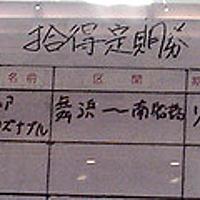 拾得定期券
名前 区間 期
ア 舞浜〜南船橋 リ
ズナブル